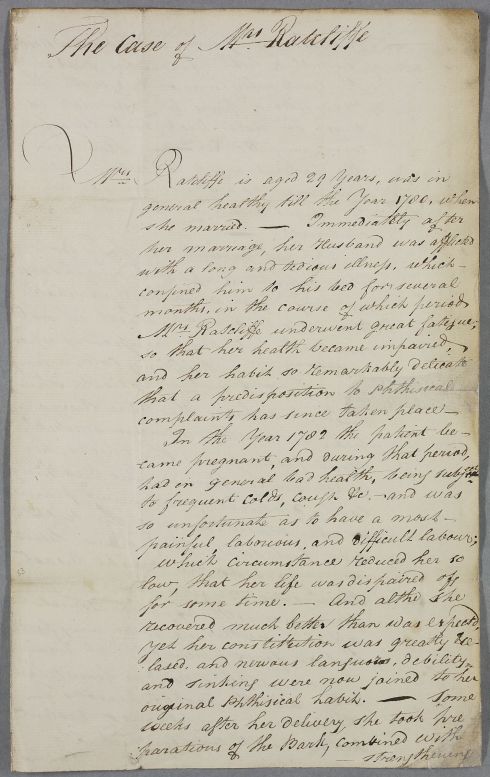 The Case of Mrs Ratcliffe
Mrs Ratcliffe is aged 29 Years, was in
general healthy till the Year 1780, when
she married. — Immediately after
her marriage, her Husband was afflicted
with a long and tedious illness, which
confined him to his bed for several
months, in the course of which period
Mrs Ratcliffe underwent great fatigue;
so that her health became impaired,
and her habit so remarkably delicate
that a predisposition to Phthisical
complaints has since taken place —
In the Year 1782 the patient be-
came pregnant, and during that period,
had in general bad health, being subject
to frequent colds, cough &c — and was
so unfortunate as to have a most
painful, laborious, and difficult labour;
which circumstance reduced her so
low, that her life was dispaired of
for some time. — And altho' she
recovered much better than was expected,
yet her constitution was greatly re-
laxed, and nervous languor, debility
and sinking were now joined to her
original Phthisical habit. — some
weeks after her delivery, she took pre
parations of the Bark, combined with
strengthening